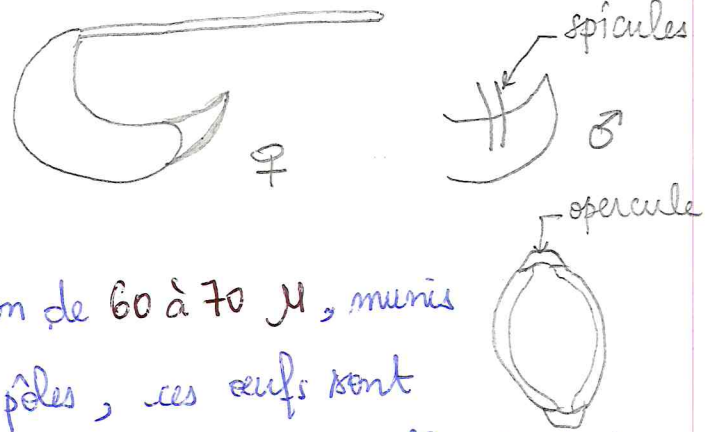 spicules
♀
♂
opercule
n de 60 à 70 µ, munis
pôles, ces œufs sont